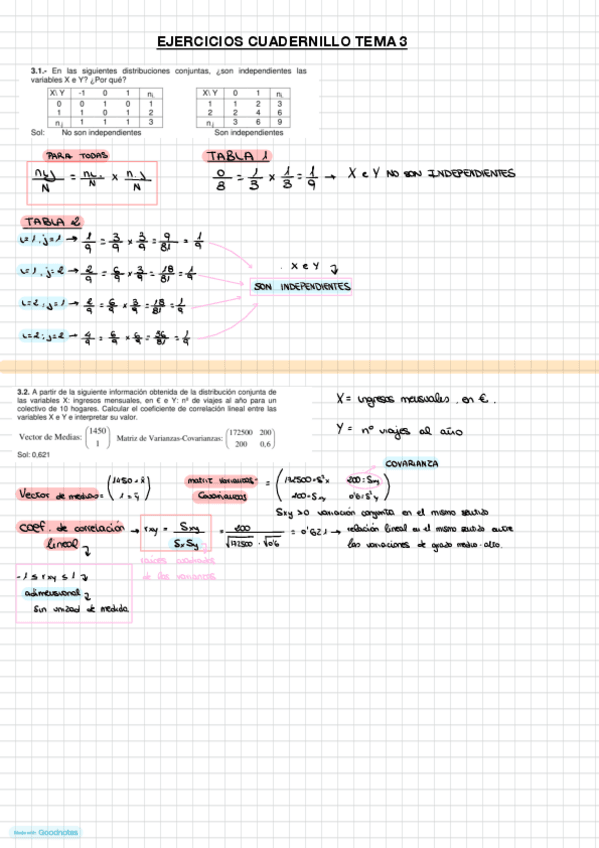 EJERCICIOS CUADERNILLO TEMA 3
3.1.- En las siguientes distribuciones conjuntas, ¿son independientes las
variables X e Y? ¿Por qué?
X\ Y -1 0 1 ni.
0 0 1 0 1
1 1 0 1 2
n.j 1 1 1 3
X\ Y 0 1 ni.
1 1 2 3
2 2 4 6
n.j 3 6 9
Sol: No son independientes Son independientes
PARA TODAS
nij/N = ni./N x n.j/N
TABLA 1
0/3 = 1/3 x 1/3 = 1/9 → X e Y NO SON INDEPENDIENTES
TABLA 2
i=1, j=1 → 1/9 = 3/9 x 3/9 = 9/81 = 1/9
i=1, j=2 → 2/9 = 6/9 x 3/9 = 18/81 = 1/9
i=2; j=1 → 2/9 = 6/9 x 3/9 = 18/81 = 1/9
i=2; j=2 → 4/9 = 6/9 x 6/9 = 36/81 = 1/9
X e Y
SON INDEPENDIENTES
3.2. A partir de la siguiente información obtenida de la distribución conjunta de
las variables X: ingresos mensuales, en € e Y: nº de viajes al año para un
colectivo de 10 hogares. Calcular el coeficiente de correlación lineal entre las
variables X e Y e interpretar su valor.
Vector de Medias: (1450 1) Matriz de Varianzas-Covarianzas: (172500 200 200 0,6)
Sol: 0,621
X = ingresos mensuales, en €.
Y = nº viajes al año
COVARIANZA
Vector de medias = (1450 = x̄ 1 = ȳ)
matriz varianzas-Covarianzas = (172500 = S²x 200 = Sxy 200 = Sxy 0'6 = S²y)
Sxy > 0 variación conjunta en el mismo sentido
coef. de correlación lineal → rxy = Sxy/SxSy = 200/√172500 · √0'6 = 0'621 → relación lineal en el mismo sentido entre
las variaciones de grado medio-alto.
raíces cuadradas
de las varianzas
-1 ≤ rxy ≤ 1
adimensional
Sin unidad de medida
Made with Goodnotes